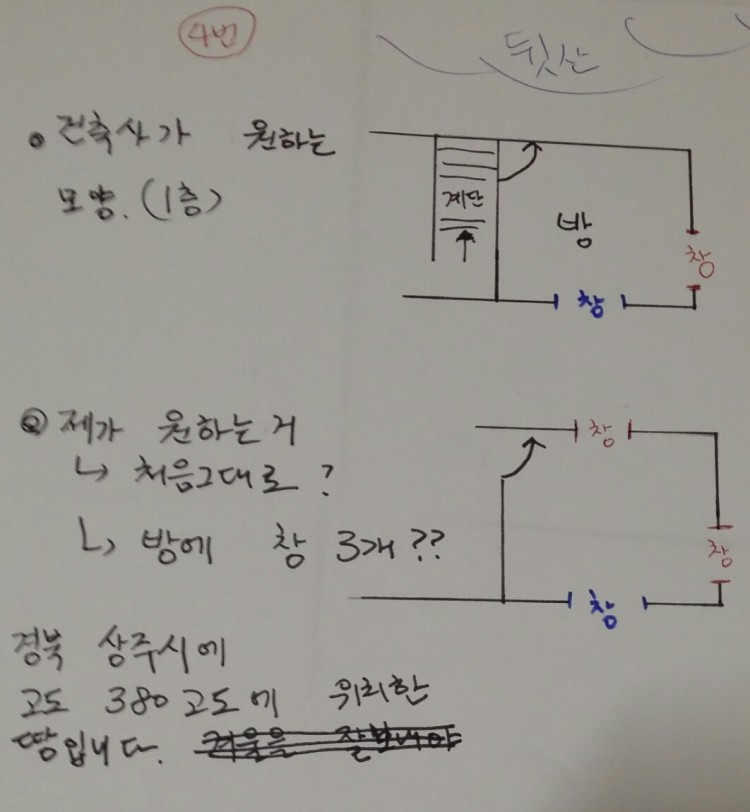 4번
뒷산
• 건축사가 원하는
모양. (1층)
계단
방
창
창
② 제가 원하는 거
↳ 처음그대로?
↳ 방에 창 3개??
창
창
창
경북 상주시에
고도 380고도에 위치한
땅입니다.